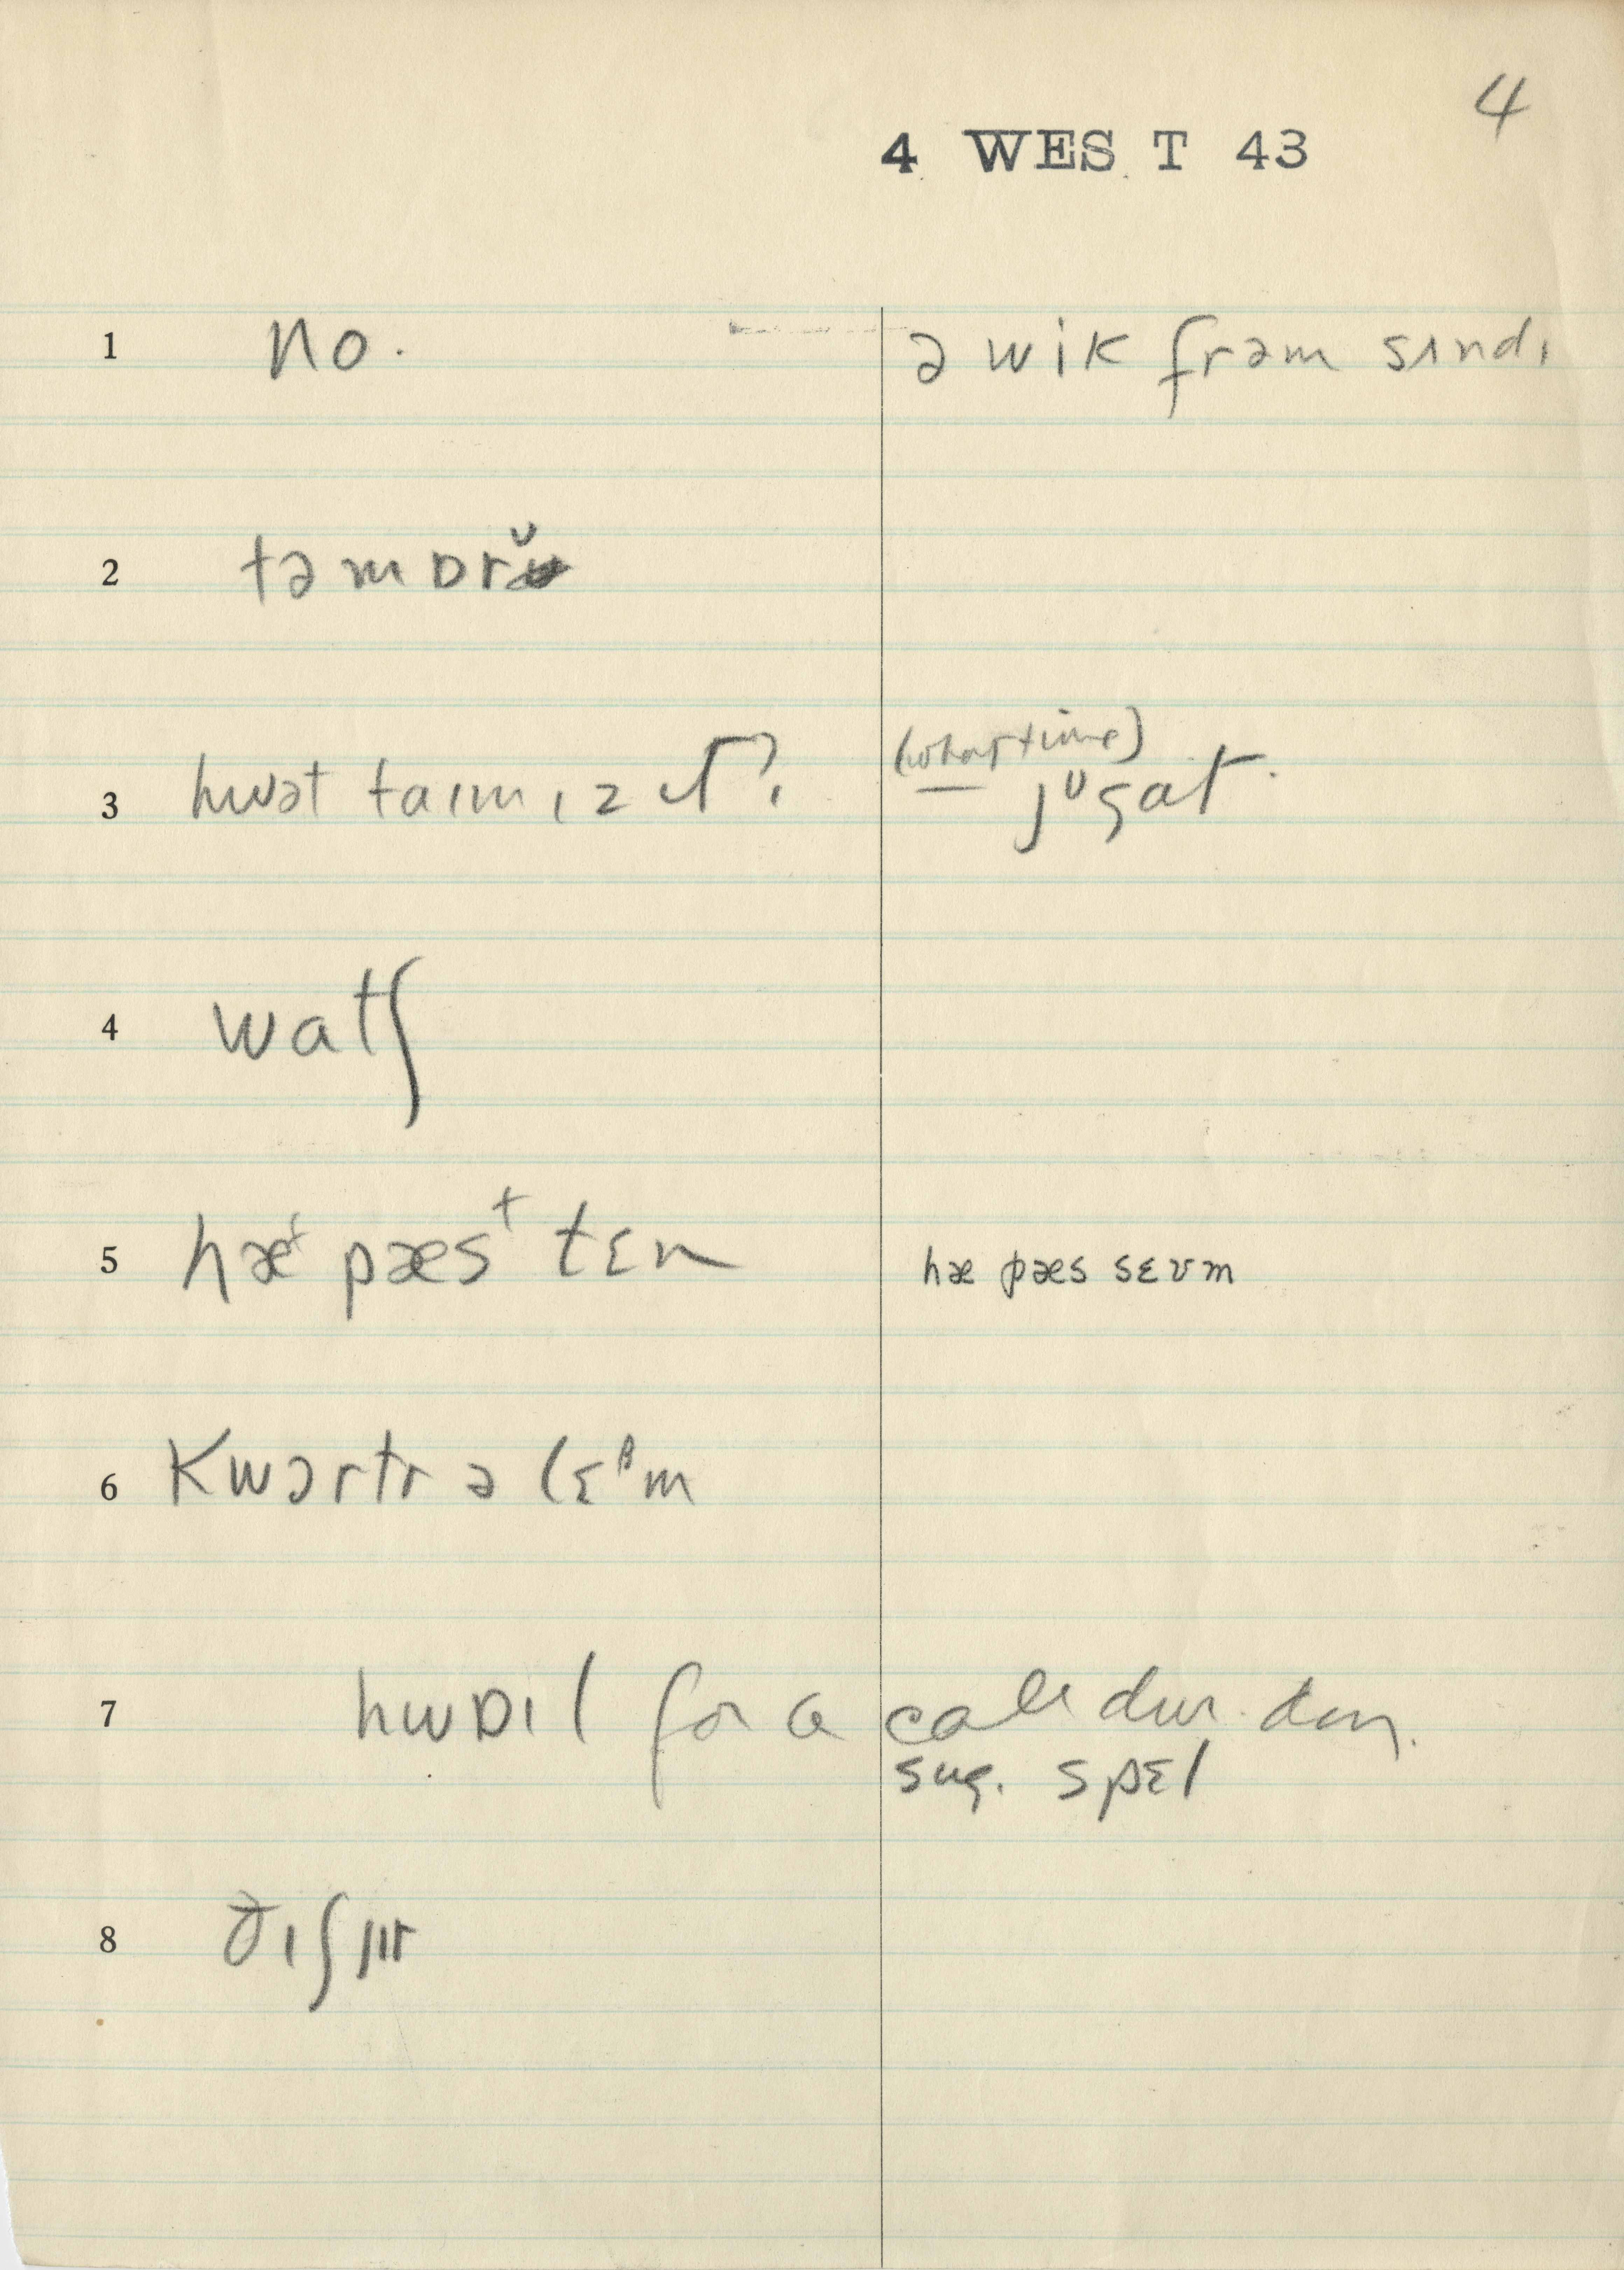 4
4 WEST 43
1 no. ə wik frəm sʌndɪ
2 təmɒrʊ̆
3 hwət taɪm ɪz ɪt? (what time)
— jᶷ gat.
4 watʃ
5 hæᶠ pæsᵗ tɛn hæ pæs sɛvm
6 kwɔrtr ə lɛᵝm
7 hwɒɪl for a
sug. spɛl
8 ðɪʃ jɪr